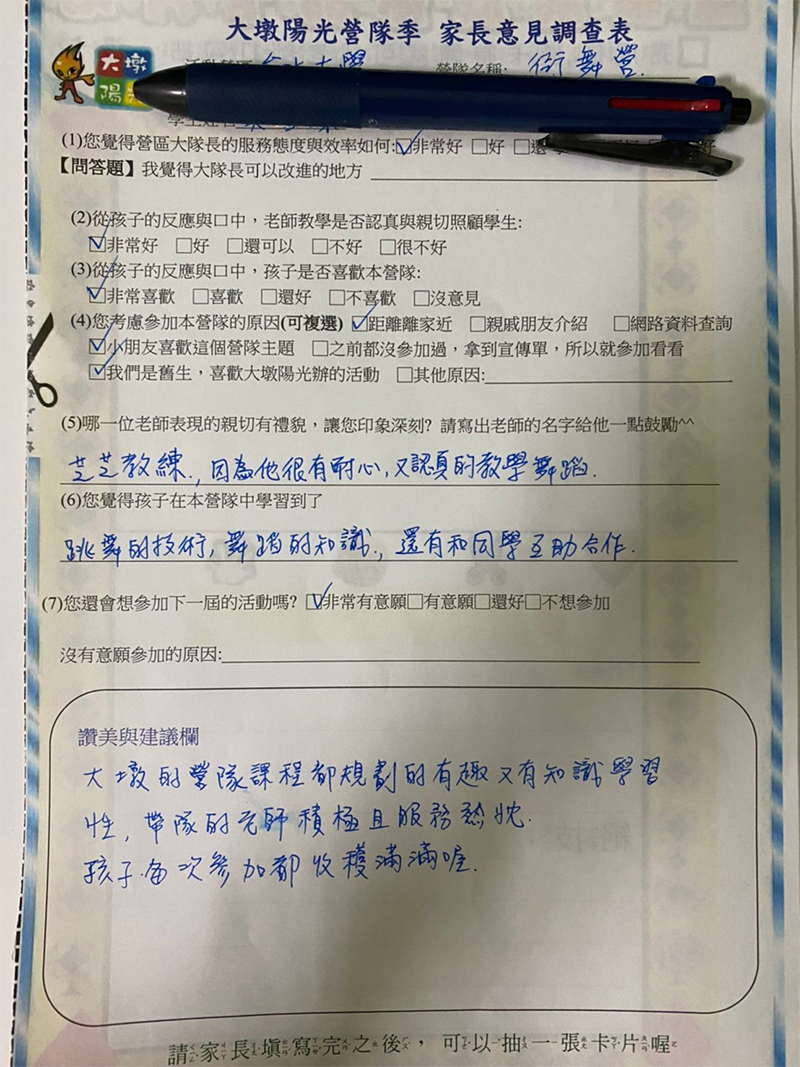 大墩陽光營隊季 家長意見調查表
大墩
陽
營隊名稱: 街舞營.
(1)您覺得營區大隊長的服務態度與效率如何:☑非常好 □好 □還
【問答題】我覺得大隊長可以改進的地方
(2)從孩子的反應與口中，老師教學是否認真與親切照顧學生:
☑非常好 □好 □還可以 □不好 □很不好
(3)從孩子的反應與口中，孩子是否喜歡本營隊:
☑非常喜歡 □喜歡 □還好 □不喜歡 □沒意見
(4)您考慮參加本營隊的原因(可複選) ☑距離離家近 □親戚朋友介紹 □網路資料查詢
☑小朋友喜歡這個營隊主題 □之前都沒參加過，拿到宣傳單，所以就參加看看
☑我們是舊生，喜歡大墩陽光辦的活動 □其他原因:
(5)哪一位老師表現的親切有禮貌，讓您印象深刻? 請寫出老師的名字給他一點鼓勵^^
芝芝教練., 因為他很有耐心, 又認真的教學舞蹈.
(6)您覺得孩子在本營隊中學習到了
跳舞的技術, 舞蹈的知識., 還有和同學互助合作.
(7)您還會想參加下一屆的活動嗎? ☑非常有意願□有意願□還好□不想參加
沒有意願參加的原因:
讚美與建議欄
大墩的營隊課程都規劃的有趣又有知識學習
性, 帶隊的老師積極且服務熱忱.
孩子每次參加都收穫滿滿喔.
請家長填寫完之後，可以抽一張卡片喔